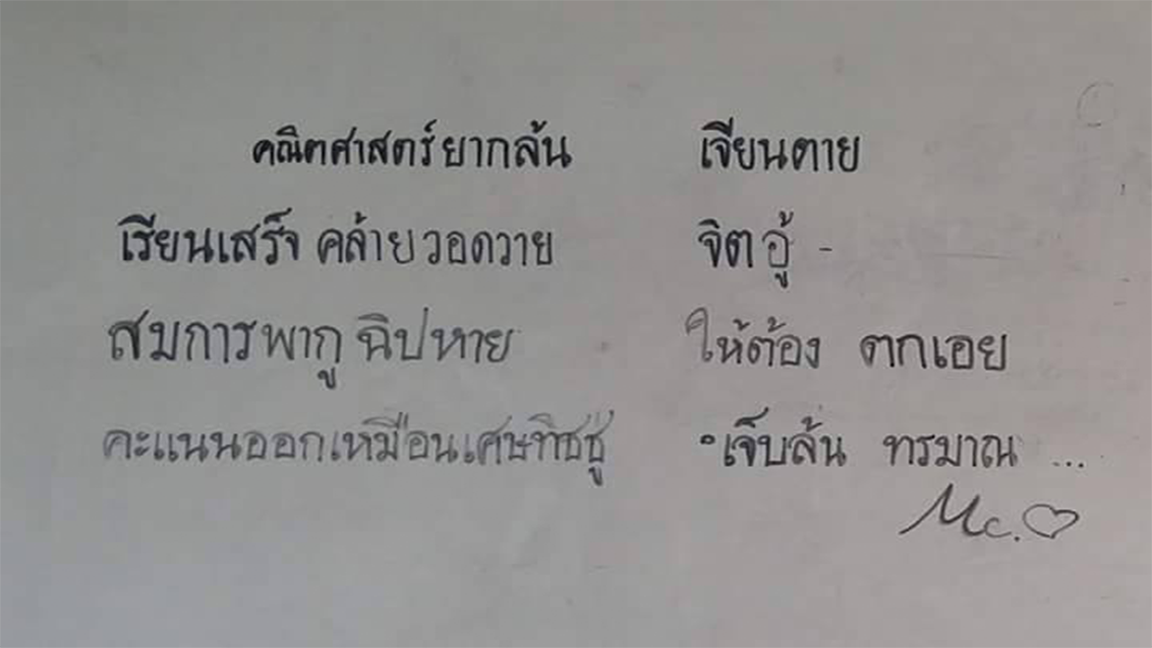 คณิตศาสตร์ยากล้น เจียนตาย
เรียนเสร็จ คล้ายวอดวาย จิตอู้ -
สมการพากู ฉิปหาย ให้ต้อง ตกเอย
คะแนนออกเหมือนเศษทิชชู่ เจ็บล้น ทรมาณ ...
Mc. ♡